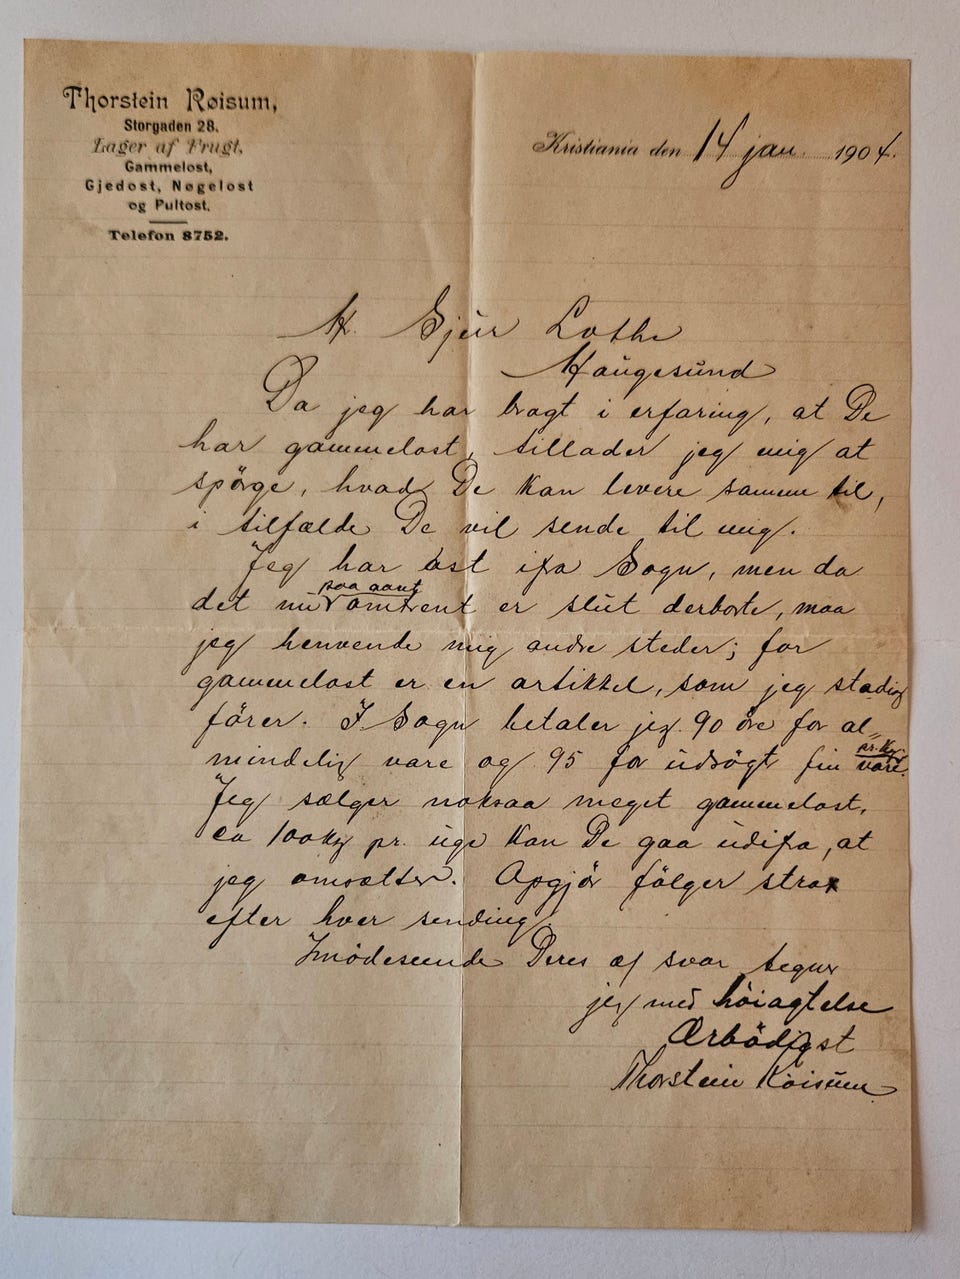 Thorstein Røisum,
Storgaden 28.
Lager af Frugt,
Gammelost,
Gjedost, Nøgelost
og Pultost.
Telefon 8752.
Kristiania den 14 jan. 1904.
Hr. Sjur Lothe
Haugesund
Da jeg har bragt i erfaring, at De
har gammelost, tillader jeg mig at
spörge, hvad De kan levere samme til,
i tilfælde De vil sende til mig.
Jeg har ost ifra Sogn, men da
saa aant
det nu omtrent er slut derborte, maa
jeg henvende mig andre steder; for
gammelost er en artikkel, som jeg stadig
förer. I Sogn betaler jeg 90 öre for al„
pr. Kg
mindelig vare og 95 for udsögt fin vare.
Jeg sælger noksaa meget gammelost,
ca 100 Kg pr. uge kan De gaa udifra, at
jeg omsætter. Opgjör fölger strax
efter hver sending.
Imödeseende Deres æ svar tegner
jeg med höiagtelse
Ærbödigst
Thorstein Röisum